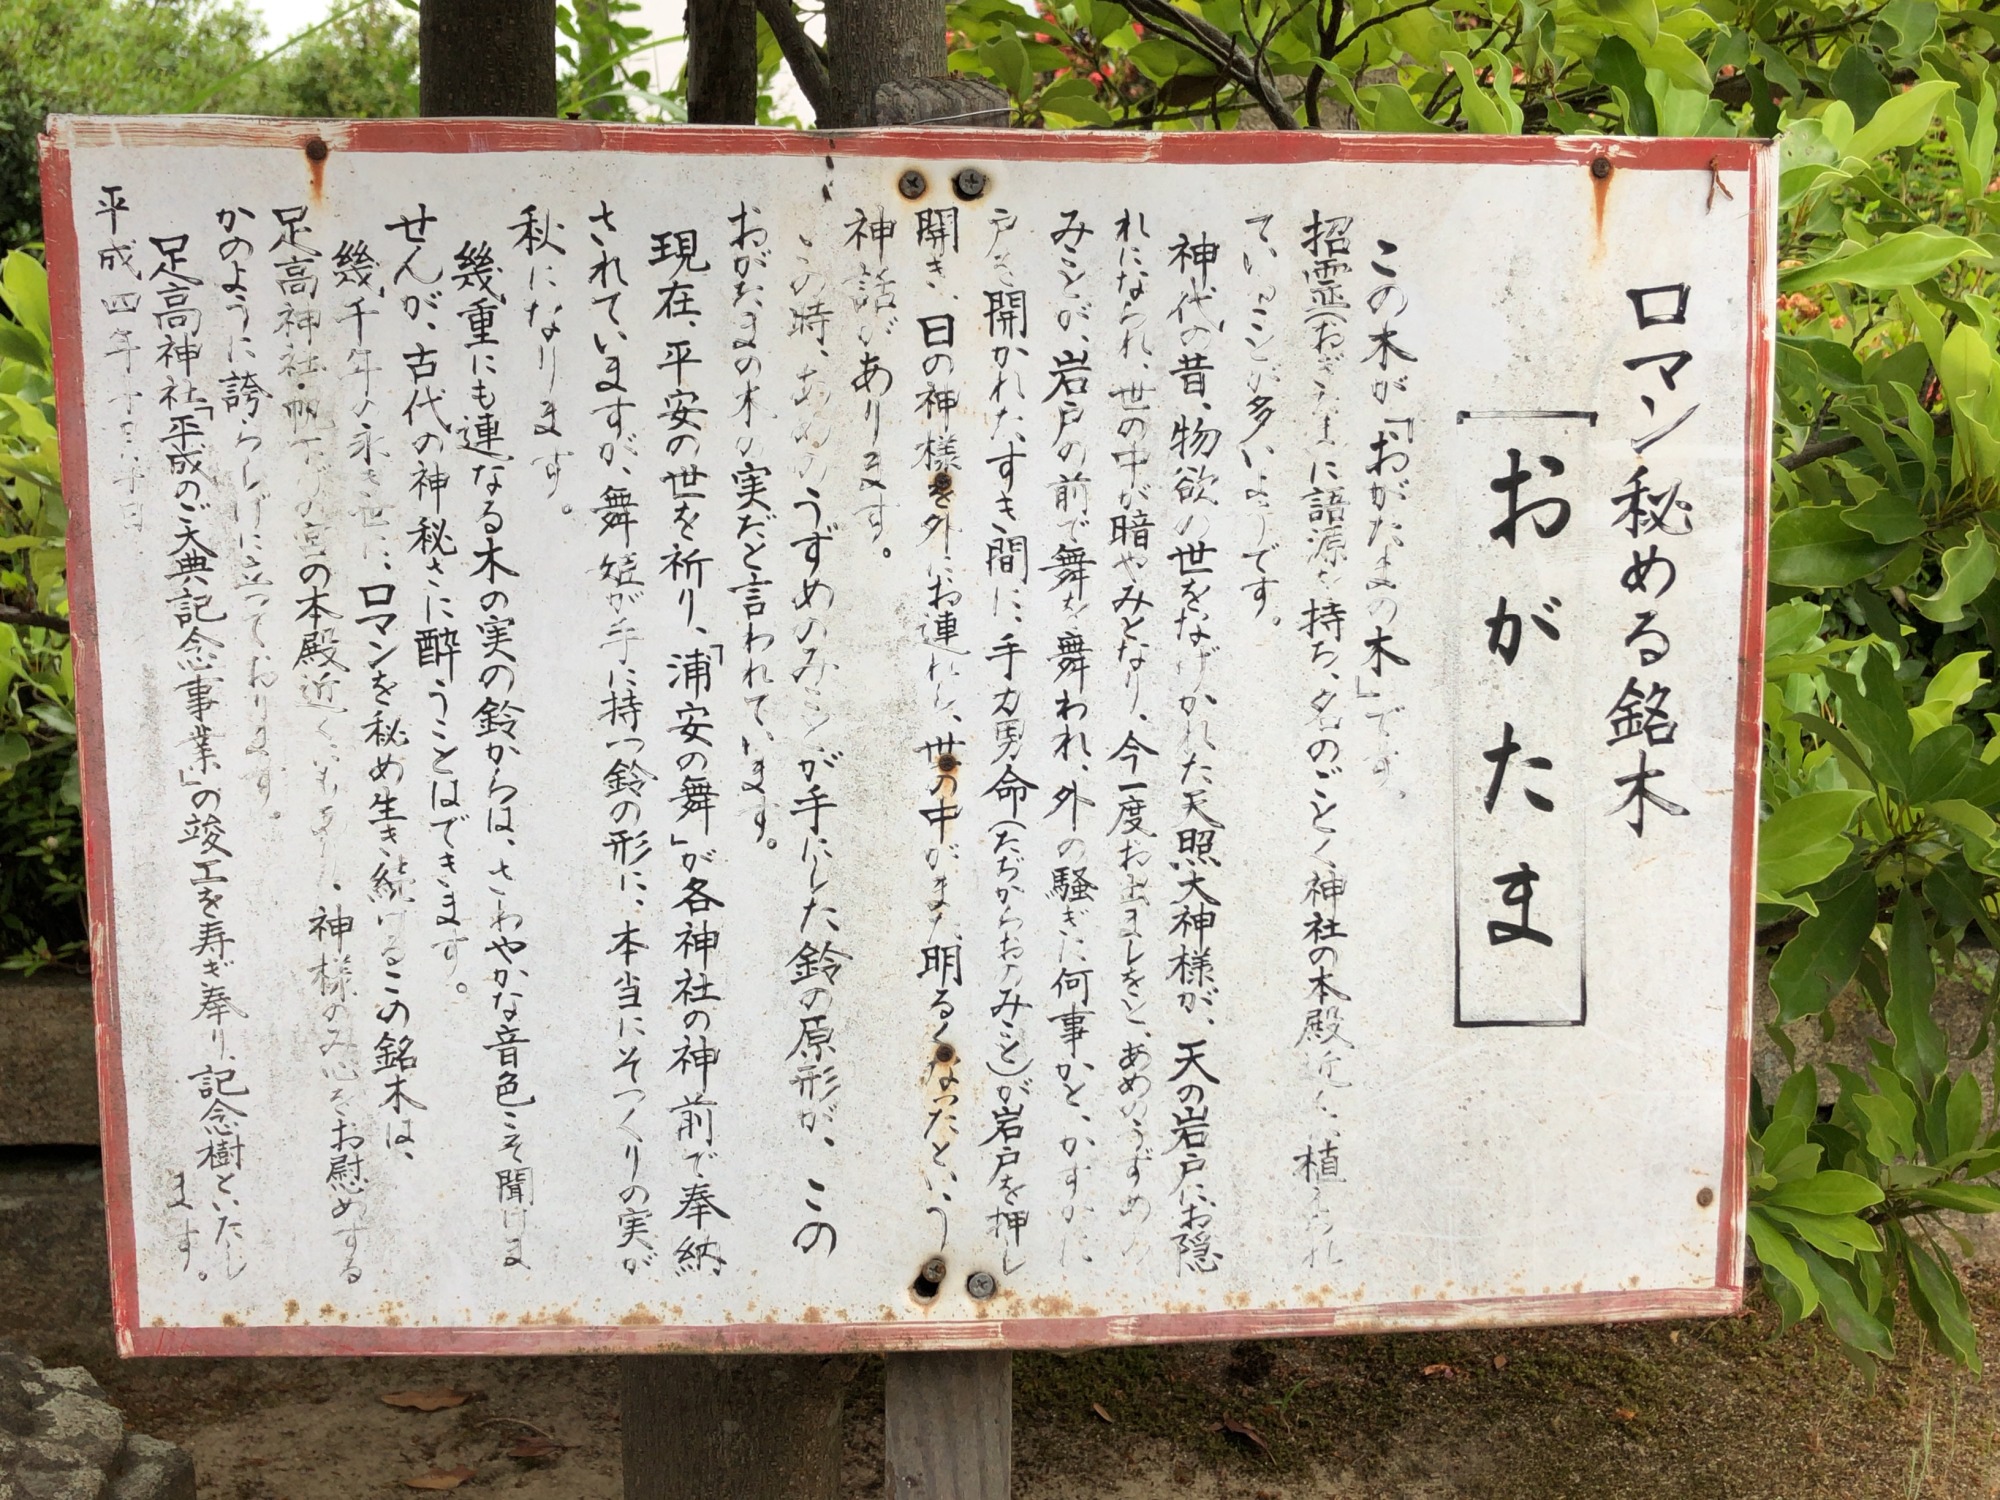 ロマン秘める銘木
「おがたま
この木が「おがたまの木」です。
招霊(おぎたま)に語源を持ち、名のごとく神社の本殿近くに植えられ
ていることが多いようです。
神代の昔、物欲の世をなげかれた天照大神様が、天の岩戸にお隠
れになられ、世の中が暗やみとなり、今一度お出ましをと、あめのうずめの
みことが、岩戸の前で舞を舞われ、外の騒ぎに何事かと、かすかに
戸を開かれたすき間に、手力男命(たぢからおのみこと)が岩戸を押し
開き、日の神様を外にお連れし、世の中がまた明るくなったという
神話があります。
この時、あめのうずめのみことが手にした鈴の原形が、この
おがたまの木の実だと言われています。
現在、平安の世を祈り、「浦安の舞」が各神社の神前で奉納
されていますが、舞姫が手に持つ鈴の形に、本当にそっくりの実が
秋になります。
幾重にも連なる木の実の鈴からは、さわやかな音色こそ聞けま
せんが、古代の神秘さに酔うことはできます。
幾千年の永き世に、ロマンを秘め生き続けるこの銘木は、
足高神社・帆下げの宮の本殿近くにも 神様のみ心をお慰めする
かのように誇らしげに立っております。
足高神社「平成のご大典記念事業」の竣工を寿ぎ奉り、記念樹といたし
ます。
平成四年十 月 日